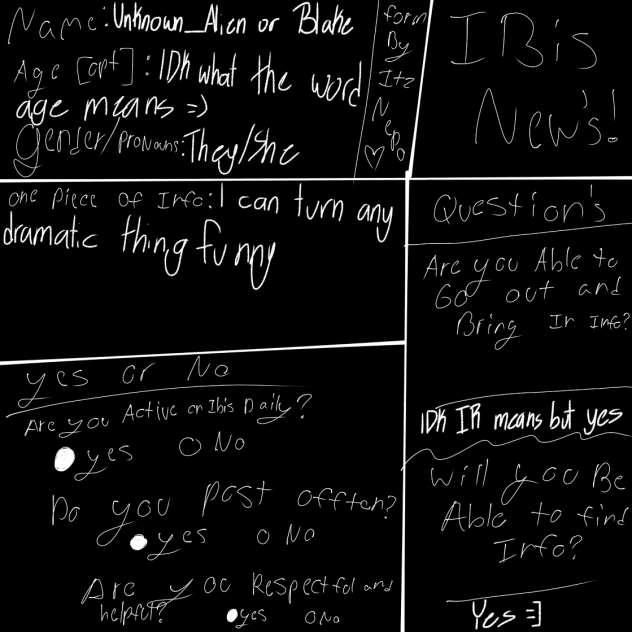 Name: Unknown_Alien or Blake
Age [opt]: IDK what the word
age means =)
Gender/Pronouns: They/She
form
By
Itz
Nepo
♡
IBis
New's!
one piece of Info: I can turn any
dramatic thing funny
Question's
Are you Able to
Go out and
Bring In Info?
IDK IR means but yes
Will you Be
Able to find
Info?
Yes =]
yes or No
Are you Active on Ibis Daily?
yes No
Do you post offten?
yes No
Are you Respectful and
helpful?
yes No